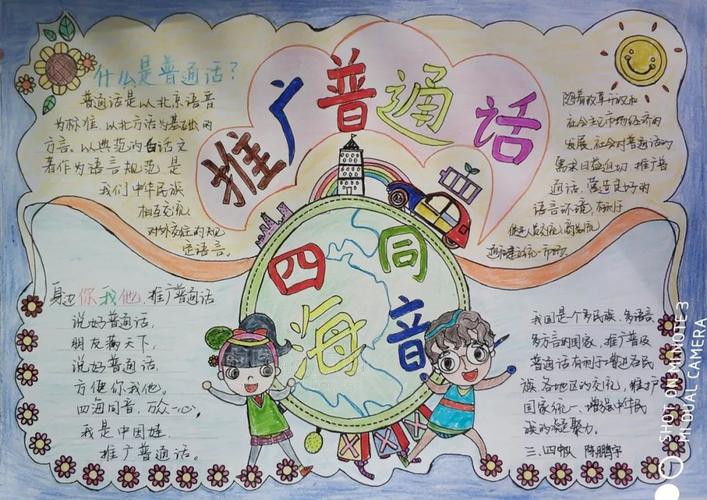 推广普通话
四海同音
什么是普通话?
普通话是以北京语音
为标准,以北方话为基础的
方言。以典范的白话文
著作为语言规范,是
我们中华民族
相互交流,
对外交往的规
定语言。
随着改革开放和
社会主义市场经济的
发展,社会对普通话的
需求日益迫切。推广普
通话,营造良好的
语言环境,有利于
身边你我他,推广普通话
说好普通话,
朋友满天下,
说好普通话,
方便你我他。
四海同音,万众一心,
我是中国娃,
推广普通话。
我国是个多民族、多语言、
多方言的国家,推广普及
普通话有利于增进各民
族各地区的交流,维护
国家统一,增强中华民
族的凝聚力。
三、四班 陈鹏宇
SHOT ON MI NOTE 3
MI DUAL CAMERA